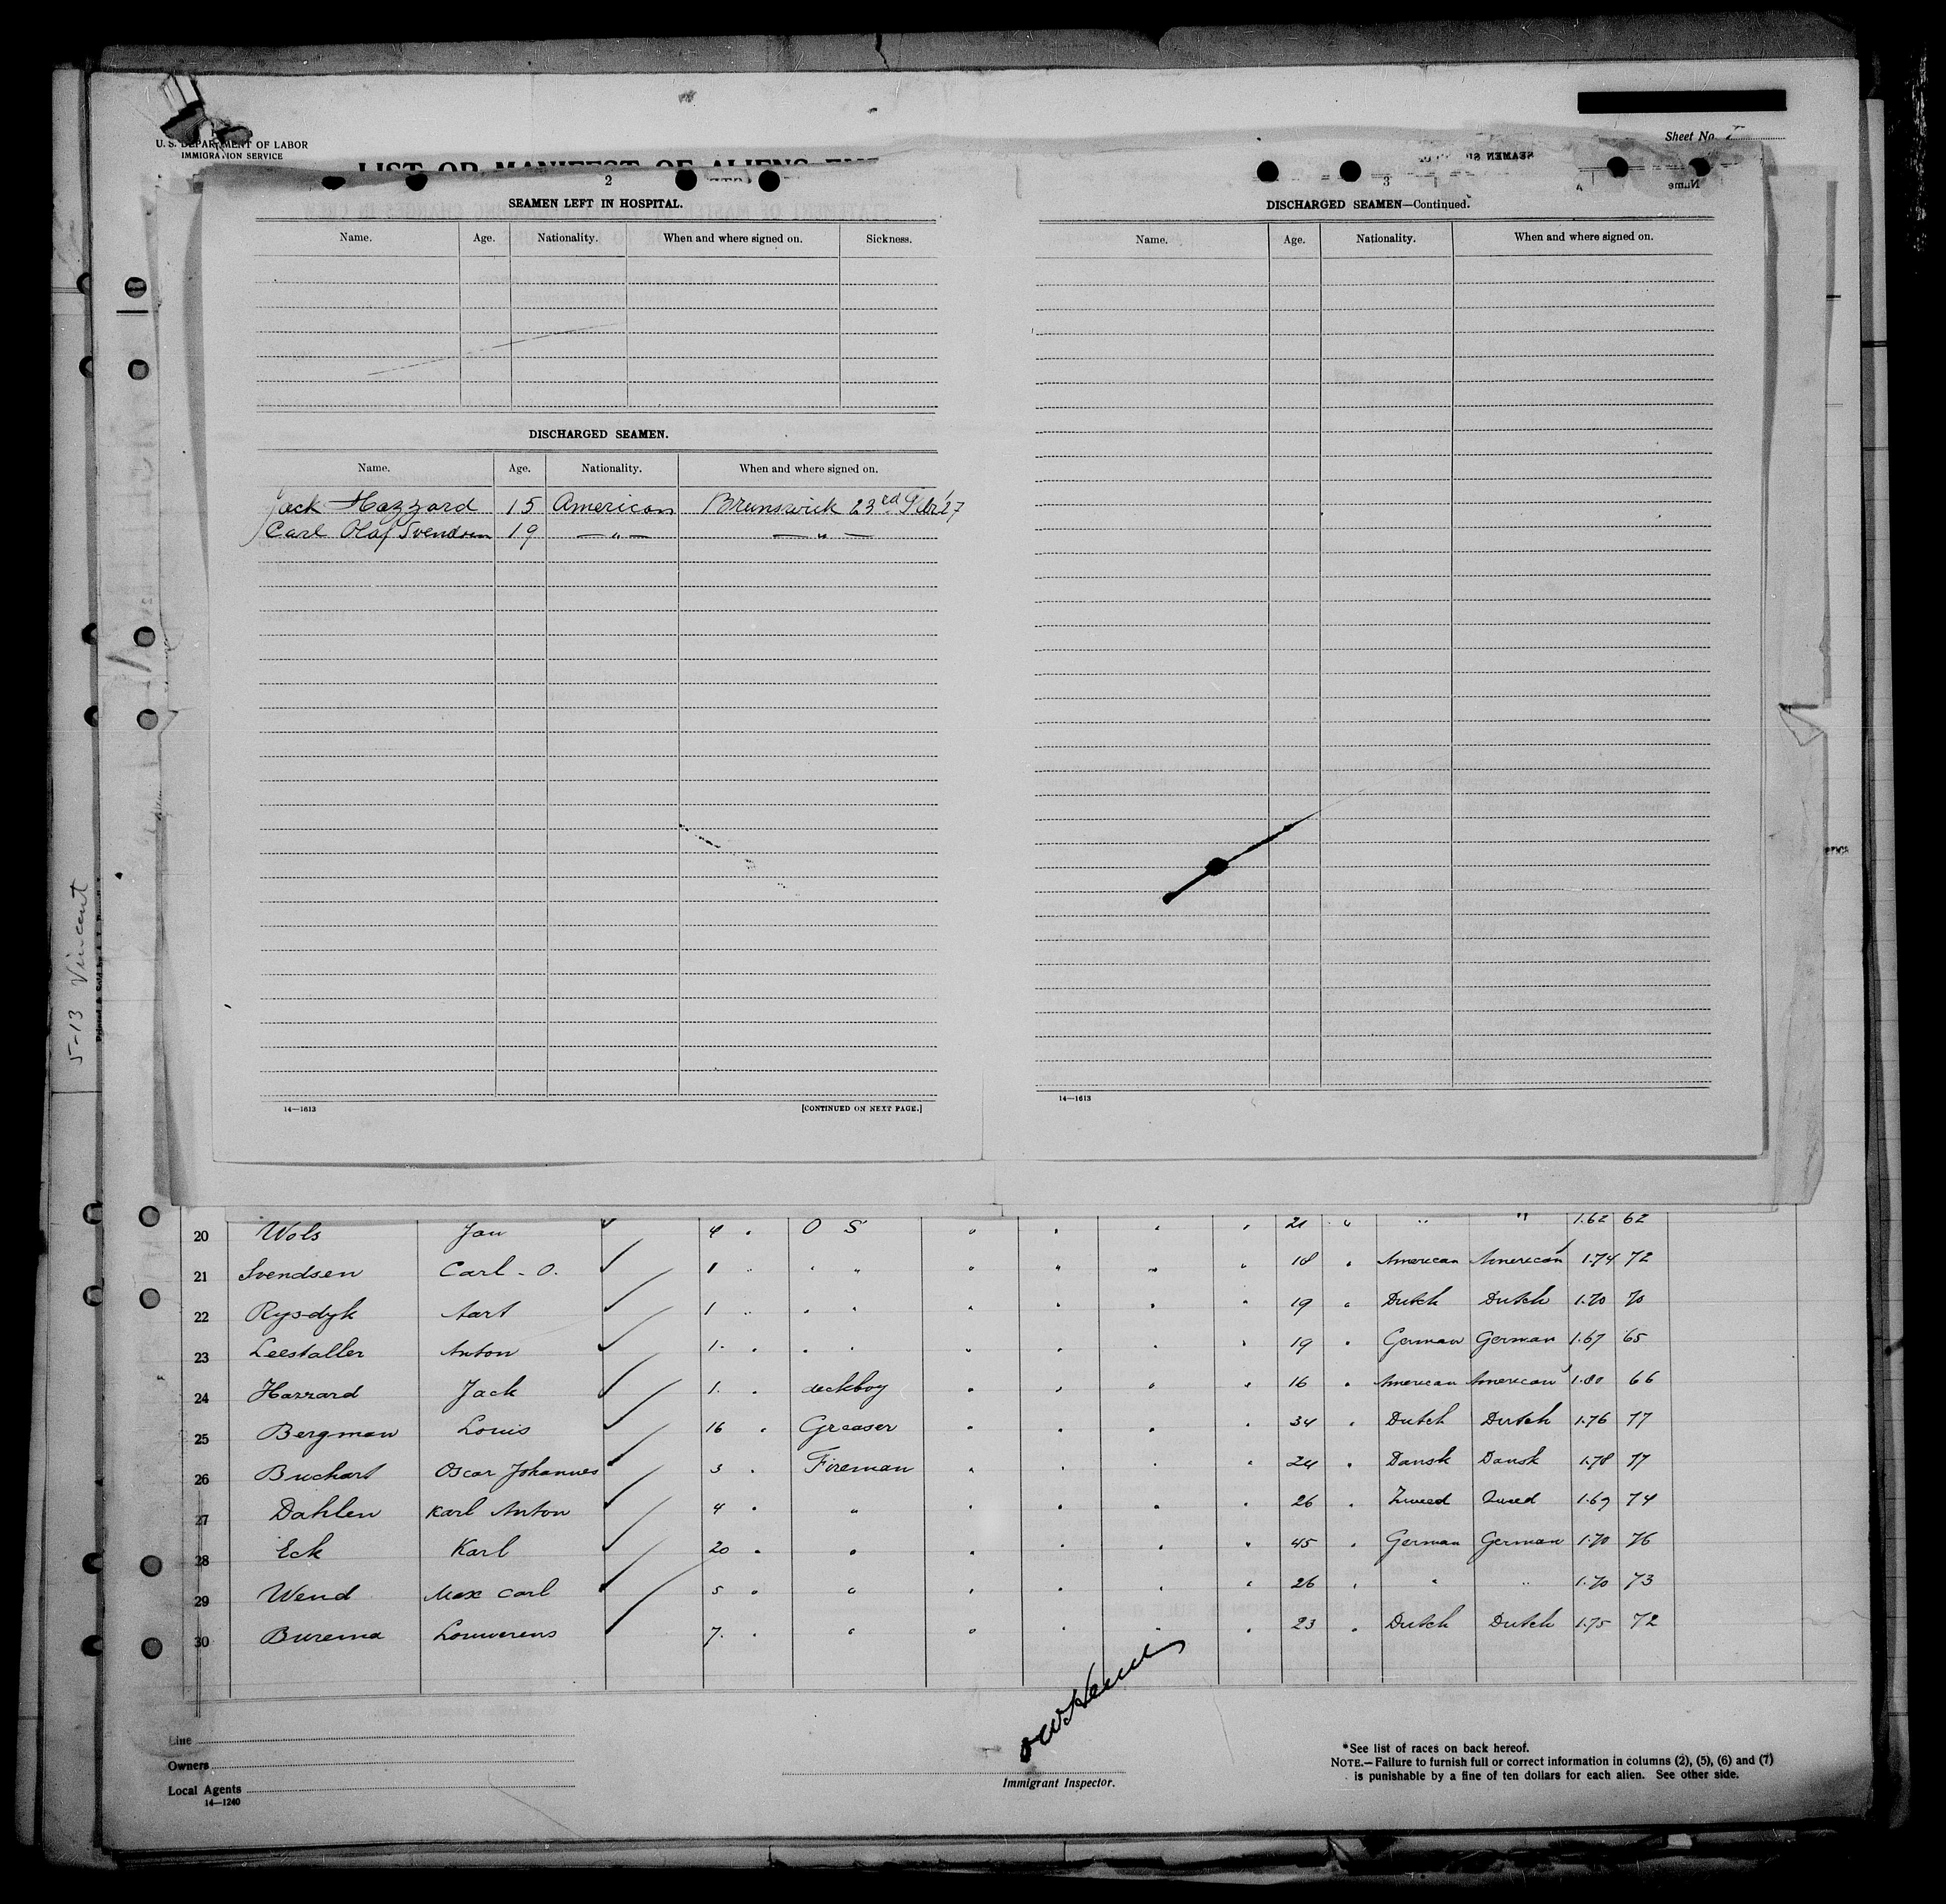 U. S. DEPARTMENT OF LABOR
IMMIGRATION SERVICE
Sheet No.
LIST OR MANIFEST OF ALIENS
2
SEAMEN LEFT IN HOSPITAL.
Name. Age. Nationality. When and where signed on. Sickness.
DISCHARGED SEAMEN.
Name. Age. Nationality. When and where signed on.
Jack Hazzard 15 American Brunswick 23rd '27
Carl Olaf Svendsen 19 — " — — " —
14—1613 [CONTINUED ON NEXT PAGE.]
3
DISCHARGED SEAMEN—Continued.
Name. Age. Nationality. When and where signed on.
14—1613
5-13 Vincent
20 Wols Jan ✓ 4 " O S " " " " 21 " " " 1.62 62
21 Svendsen Carl - O. ✓ 1 " " " " " " " 18 " American American 1.74 72
22 Rysdyk Aart ✓ 1 " " " " " " " 19 " Dutch Dutch 1.70 70
23 Leestaller Anton ✓ 1. " " " " " " " 19 " German German 1.67 65
24 Hazzard Jack ✓ 1. " deckboy " " " " 16 " American American 1.80 66
25 Bergman Louis ✓ 16 " Greaser " " " " 34 " Dutch Dutch 1.76 77
26 Buchart Oscar Johannes ✓ 3 " Fireman " " " " 24 " Dansk Dansk 1.78 77
27 Dahlen Karl Anton ✓ 4 " " " " " " 26 " Zweed Zweed 1.69 74
28 Eck Karl ✓ 20 " " " " " " 45 " German German 1.70 76
29 Wend Max Carl ✓ 5 " " " " " " 26 " " " 1.70 73
30 Burema Louwerens ✓ 7. " " " " " " 23 " Dutch Dutch 1.75 72
Line
Owners
Local Agents
14—1240
Immigrant Inspector.
*See list of races on back hereof.
NOTE.—Failure to furnish full or correct information in columns (2), (5), (6) and (7)
is punishable by a fine of ten dollars for each alien. See other side.